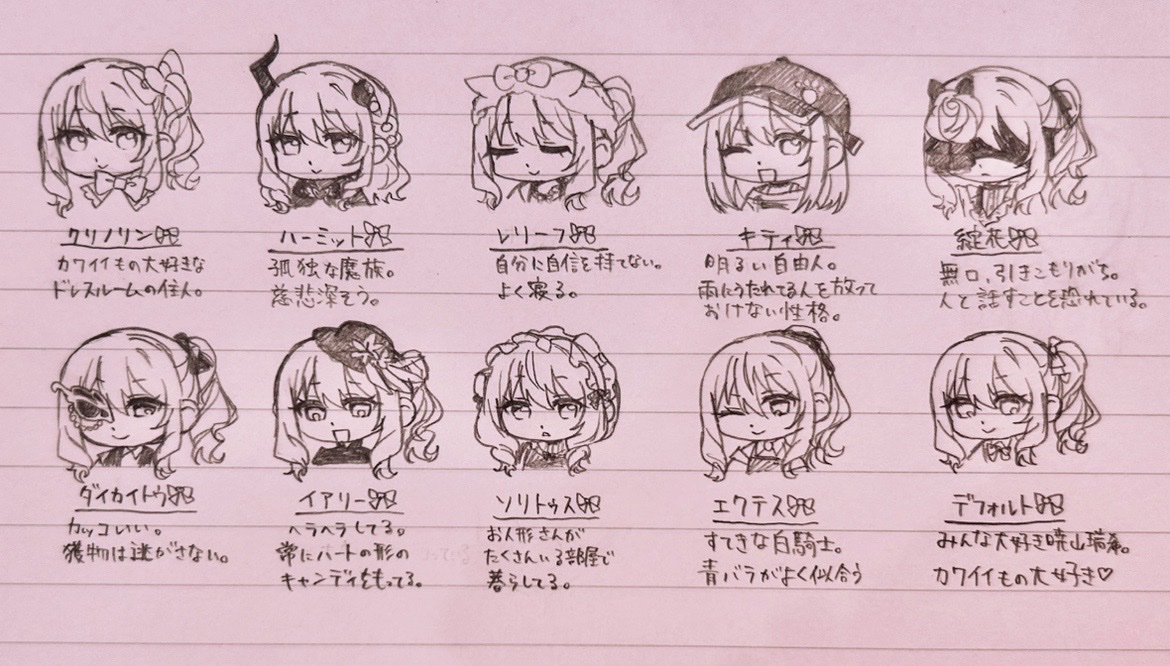 クリノリン
カワイイもの大好きな
ドレスルームの住人。
ハーミット
孤独な魔族。
慈悲深そう。
レリーフ
自分に自信を持てない。
よく寝る。
キティ
明るい自由人。
雨にうたれてる人を放って
おけない性格。
綻花
無口、引きこもりがち。
人と話すことを恐れている。
ダイカイトウ
カッコいい。
獲物は逃がさない。
イアリー
ヘラヘラしてる。
常にハートの形の
キャンディをもってる。
ソリトゥス
お人形さんが
たくさんいる部屋で
暮らしてる。
エクテス
すてきな白騎士。
青バラがよく似合う
デフォルト
みんな大好き暁山瑞希。
カワイイもの大好き♡